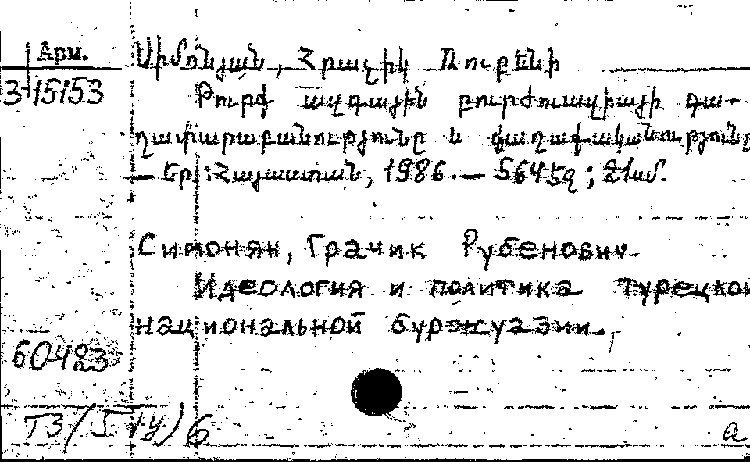 Арм.
Սիմոնյան, Հրաչիկ Ռուբենի
3-15153
Թուրք ազգային բուրժուազիայի գա-
ղափարաբանությունը և քաղաքականությունը
— Եր.: Հայաստան, 1986. — 564 էջ; 21սմ.
Симонян, Грачик Рубенович.
Идеология и политика турецкой
национальной буржуазии.
60423
Т3(5Ту)6
а